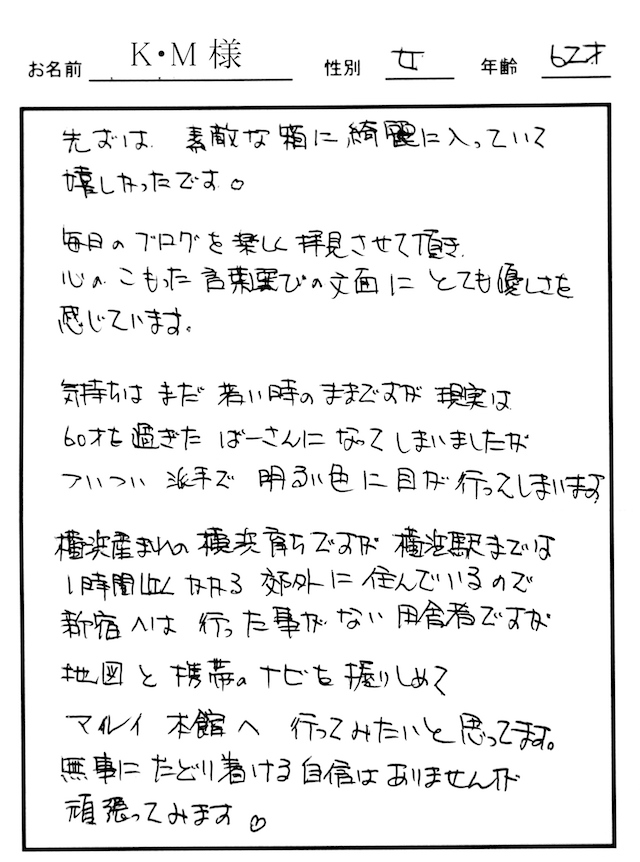 お名前 K・M 様 性別 女 年齢 62才
先ずは 素敵な箱に綺麗に入っていて
嬉しかったです。
毎日のブログを楽しく拝見させて頂き
心の こもった 言葉選びの文面に とても優しさを
感じています。
気持ちは まだ 若い時のままですが 現実は
60才を過ぎた ばーさんに なって しまいましたが
ついつい 派手で 明るい色に目が行ってしまいます
横浜産まれの 横浜育ちですが 横浜駅までは
1時間近く かかる 郊外に 住んでいるので
新宿へは 行った事がない 田舎者ですが
地図と携帯のナビを握りしめて
マルイ 本館へ 行ってみたいと思ってます。
無事に たどり着ける自信はありませんが
頑張ってみます♡